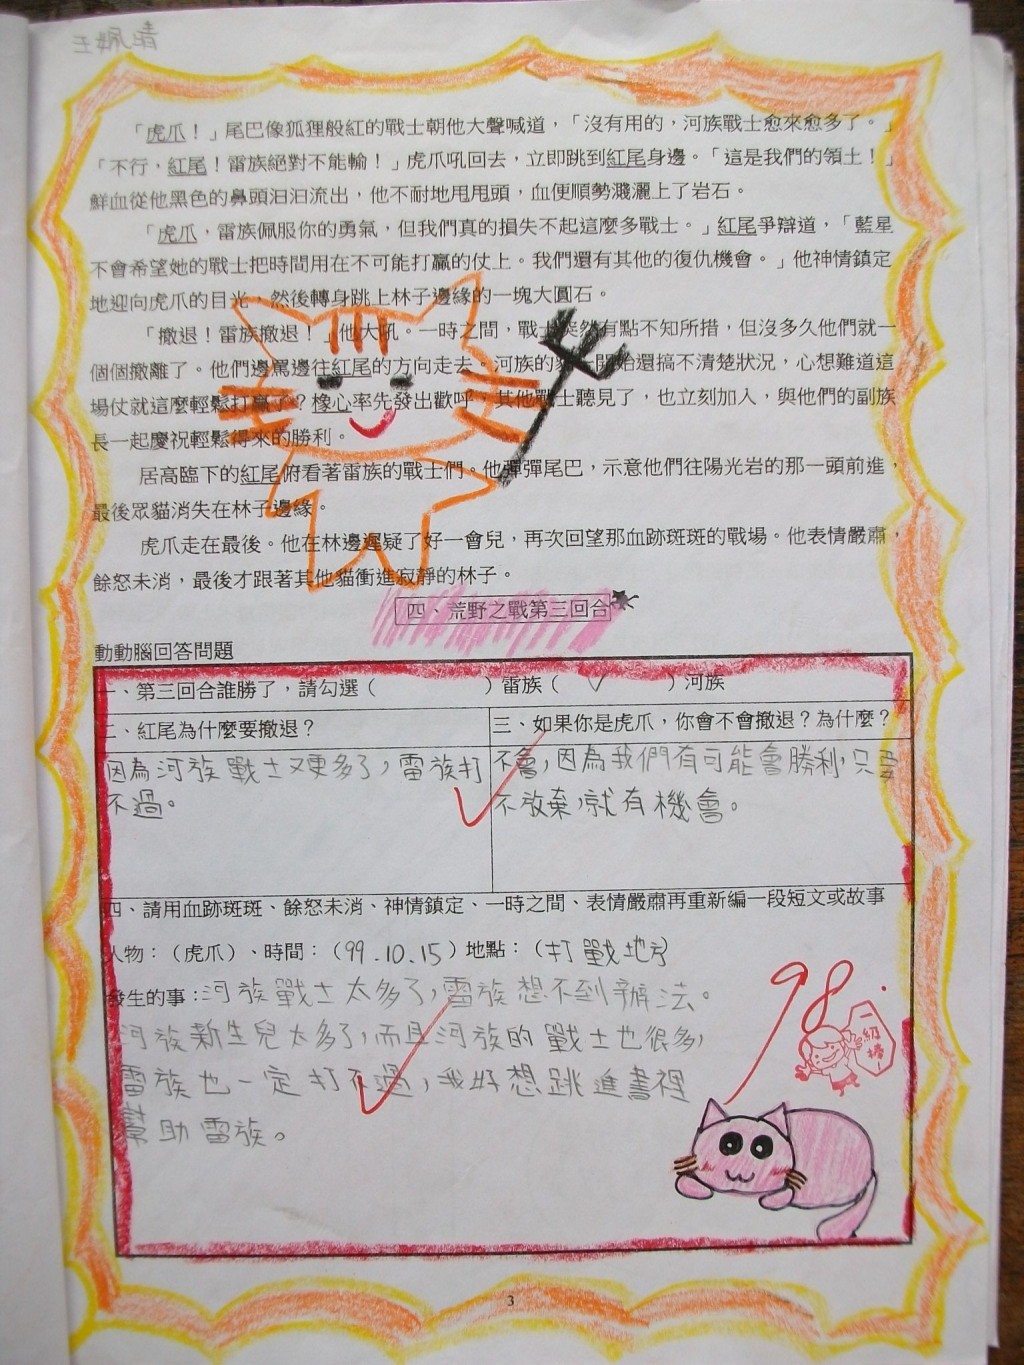 王姵晴
「虎爪！」尾巴像狐狸般紅的戰士朝他大聲喊道，「沒有用的，河族戰士愈來愈多了。」
「不行，紅尾！雷族絕對不能輸！」虎爪吼回去，立即跳到紅尾身邊。「這是我們的領土！」
鮮血從他黑色的鼻頭汩汩流出，他不耐地甩甩頭，血便順勢濺灑上了岩石。
「虎爪，雷族佩服你的勇氣，但我們真的損失不起這麼多戰士。」紅尾爭辯道，「藍星
不會希望她的戰士把時間用在不可能打贏的仗上。我們還有其他的復仇機會。」他神情鎮定
地迎向虎爪的目光、然後轉身跳上林子邊緣的一塊大圓石。
「撤退！雷族撤退！」他大吼。一時之間，戰士突然有點不知所措，但沒多久他們就一
個個撤離了。他們邊罵邊往紅尾的方向走去。河族的貓一開始還搞不清楚狀況，心想難道這
場仗就這麼輕鬆打贏了？橡心率先發出歡呼，其他戰士聽見了，也立刻加入，與他們的副族
長一起慶祝輕鬆得來的勝利。
居高臨下的紅尾俯看著雷族的戰士們。他彈彈尾巴，示意他們往陽光岩的那一頭前進，
最後眾貓消失在林子邊緣。
虎爪走在最後。他在林邊遲疑了好一會兒，再次回望那血跡斑斑的戰場。他表情嚴肅，
餘怒未消，最後才跟著其他貓衝進寂靜的林子。
四、荒野之戰第三回合
動動腦回答問題
一、第三回合誰勝了，請勾選（　　　）雷族（　✓　）河族
二、紅尾為什麼要撤退？
三、如果你是虎爪，你會不會撤退？為什麼？
因為河族戰士又更多了，雷族打
不過。
不會，因為我們有可能會勝利，只要
不放棄，就有機會。
四、請用血跡斑斑、餘怒未消、神情鎮定、一時之間、表情嚴肅再重新編一段短文或故事
人物：（虎爪）、時間：（99.10.15）地點：（打戰地方
發生的事：河族戰士太多了，雷族想不到辦法。
河族新生兒太多了，而且河族的戰士也很多，
雷族也一定打不過，我好想跳進書裡
幫助雷族。
98
一級棒！
3